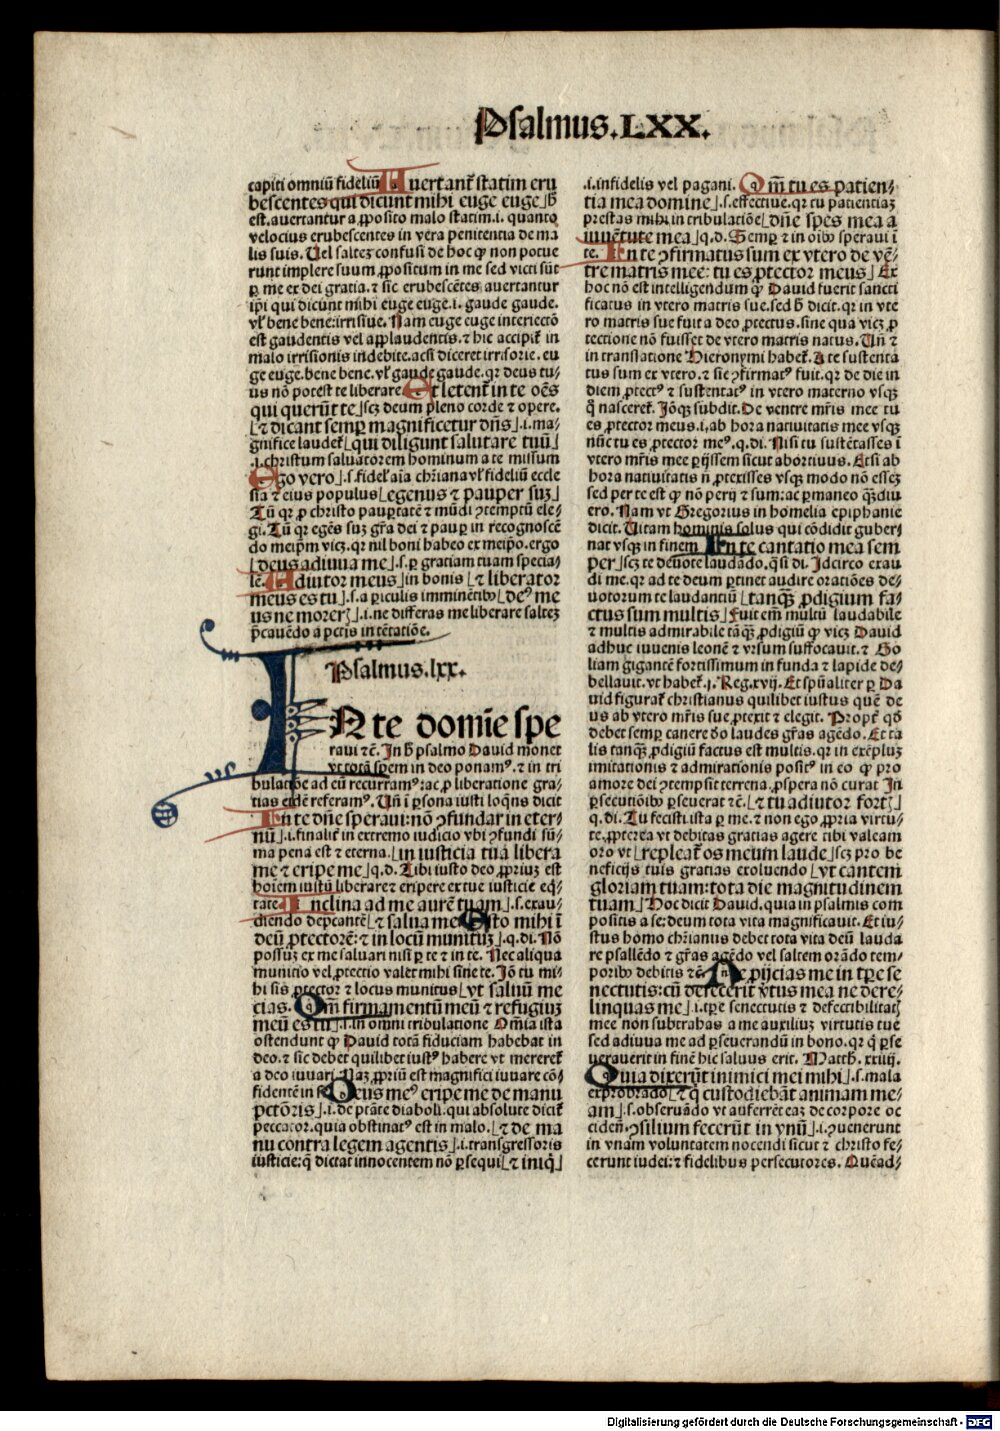 Psalmus.LXX.
capiti omniū fideliū Auertant᷑ statim eru
bescentes qui dicunt mihi euge euge⌋ hͦ
est. auertantur a ꝓposito malo statim .i. quanto
velocius erubescentes in vera penitentia de ma
lis suis. Uel saltez confusi de hoc ꝙ non potue
runt implere suum ꝓpositum in me sed victi sūt
ꝑ me ex dei gratia. ⁊ sic erubescētes auertantur
ip̄i qui dicunt mihi euge euge .i. gaude gaude.
vl᷑ bene bene: irrisiue. Nam euge euge interiectō
est gaudentis vel applaudentis. ⁊ hic accipit᷑ in
malo irrisionis indebite. acsi diceret irrisorie. eu
ge euge. bene bene. vl᷑ gaude gaude. qr deus tu-
us nō potest te liberare Et letent᷑ in te oēs
qui querūt te⌋ scꝫ deum pleno corde ⁊ opere.
⌊⁊ dicant semꝑ magnificetur dn̄s⌋ .i. ma-
gnifice laudet᷑⌊qui diligunt salutare tuū⌋
.i. christum saluatorem hominum a te missum
Ego vero⌋ .s. fidel᷑ aīa chr̄iana vl᷑ fideliū eccle
sia ⁊ eius populus⌊egenus ⁊ pauper suꝫ⌋
Tū qr ꝓ christo paupertatē ⁊ mūdi ꝯtemptū ele-
gi. Tū qr egēs suꝫ gr̄a dei ⁊ pauꝑ in recognoscē
do meip̄m vicꝫ. qr nil boni habeo ex meip̄o. ergo
⌊deus adiuua me⌋ .s. ꝑ gratiam tuam specia-
lē. Adiutor meus⌋ in bonis ⌊⁊ liberator
meus es tu⌋ .s. a ꝑiculis imminētibꝫ⌊deꝰ me
us ne moreꝝ⌋ .i. ne differas me liberare saltez
p̄cauēdo a pctis in tētatiōe.
Psalmus.lxx.
IN te domīe spe
raui ⁊c̄. In hͦ psalmo Dauid monet
vt totā spem in deo ponamꝰ. ⁊ in tri
bulatiōe ad eū recurramꝰ: ac ꝓ liberatione gra-
tias eidē referamꝰ. Un̄ ī ꝑsona iusti loq̄ns dicit
In te dn̄e speraui: nō ꝯfundar in eter-
nū⌋ .i. finalit᷑ in extremo iudicio vbi ꝯfundi sū-
ma pena est ⁊ eterna. ⌊in iusticia tua libera
me ⁊ eripe me⌋ q.d. Tibi iusto deo ꝓprium est
hoīem iustū liberare ⁊ eripere ex tue iusticie eq̄-
tate. Inclina ad me aurē tuam⌋ .s. exau-
diendo depcantē⌊⁊ salua me Esto mihi ī
deū ꝓtectorē: ⁊ in locū munitūꝫ⌋ .q.di. Nō
possuꝫ ex me saluari nisi ꝑ te ⁊ in te. Nec aliqua
munitio vel ꝓtectio valet mihi sine te. Iō tu mi-
hi sis ꝓtector ⁊ locus munitus⌊vt saluū me
facias. Qm̄ firmamentūm meū ⁊ refugiuꝫ
meū es tu⌋ .s. in omni tribulatione Om̄ia ista
ostendunt ꝙ Dauid totā fiduciam habebat in
deo. ⁊ sic debet quilibet iustꝰ habere vt mereret᷑
a deo iuuari. Naꝫ ꝓpriū est magnifici iuuare cō-
fidentē in se Deus meꝰ eripe me de manu
pctōris⌋ .i. de ptāte diaboli. qui absolute dicit᷑
peccator. quia obstinatꝰ est in malo. ⌊⁊ de ma
nu contra legem agentis⌋ .i. transgressoris
iusticie: q̄ dictat innocentem nō ꝑsequi⌊⁊ iniq̄⌋
.i. infidelis vel pagani. Qm̄ tu es patien-
tia mea domine⌋ .s. effectiue. qr tu patientiaꝫ
prestas mihi in tribulatiōe⌊dn̄e spes mea a
iuuētute mea⌋ q.d. Semꝑ ⁊ in oībꝫ speraui ī
te. In te ꝯfirmatus sum ex vtero de vē-
tre matris mee: tu es ꝓtector meus⌋ Ex
hoc nō est intelligendum ꝙ Dauid fuerit sancti
ficatus in vtero matris sue. sed hͦ dicit. qr in vte
ro matris sue fuit a deo ꝓtectus. sine qua vicꝫ ꝓ
tectione nō fuisset de vtero matris natus. Un̄ ⁊
in translatione Hieronymi habet᷑. A te sustenta
tus sum ex vtero. ⁊ sic ꝯfirmatꝰ fuit. qr de die in
diem ꝓtectꝰ ⁊ sustentatꝰ in vtero materno vsqꝫ
q̄ nasceret᷑. Iōqꝫ subdit. De ventre mr̄is mee tu
es ꝓtector meus .i. ab hora natiuitatis mee vsqꝫ
nūc tu es ꝓtector meꝰ. q.di. Nisi tu sustētasses ī
vtero mr̄is mee ꝑijssem sicut abortiuus. Etsi ab
hora natiuitatis n̄ ꝓtexisses vsqꝫ modo nō essez
sed per te est ꝙ nō perij ⁊ sum: ac ꝑmaneo qͣ̄diu
ero. Nam vt Gregorius in homelia epiphanie
dicit. Uitam hominis solus qui cōdidit guber-
nat vsqꝫ in finem In te cantatio mea sem
per⌋ scꝫ te deuote laudādo. q̄si di. Idcirco exau
di me. qr ad te deum ꝑtinet audire oratiōes de-
uotorum te laudantiū⌊tanqꝫ̄ ꝓdigium fa-
ctus sum multis⌋ Fuit em̄ multū laudabile
⁊ multis admirabile tāqꝫ̄ ꝓdigiū ꝙ vicꝫ Dauid
adhuc iuuenis leonē ⁊ vrsum suffocauit. ⁊ Go
liam gigantē fortissimum in funda ⁊ lapide de-
bellauit. vt habet᷑. j. Reg. xvij. Et spūaliter ꝑ Da
uid figurat᷑ christianus quilibet iustus quē de
us ab vtero mr̄is sue ꝓtexit ⁊ elegit. Propt᷑ qd̄
debet semꝑ canere dō laudes gr̄as agēdo. Et ta
lis tanqꝫ̄ ꝓdigiū factus est multis. qr in exēpluꝫ
imitationis ⁊ admirationis positꝰ in eo ꝙ pro
amore dei ꝯtempsit terrena. ꝓspera nō curat In
ꝑsecutiōibꝫ ꝑseuerat ⁊c̄. ⌊⁊ tu adiutor fortꝭ⌋
q.di. Tu fecisti ista ꝑ me. ⁊ non ego ꝓpria virtu-
te. ꝓpterea vt debitas gratias agere tibi valeam
oro vt⌊repleat᷑ os meum laude⌋ scꝫ pro be
neficijs tuis gratias exoluendo⌊vt cantem
gloriam tuam: tota die magnitudinem
tuam⌋ Hoc dicit Dauid. quia in psalmis com
positis a se: deum tota vita magnificauit. Et iu-
stus homo chr̄ianus debet tota vita deū lauda
re psallēdo ⁊ gr̄as agēdo vel saltem orādo tem-
poribꝫ debitis ⁊c̄ Ne ꝓijcias me in tꝑe se
nectutis: cū defecerit v̄tus mea ne dere-
linquas me⌋ .i. tꝑe senectutis ⁊ defectibilitatꝭ
mee non subtrahas a me auxiliuꝫ virtutis tue
sed adiuua me ad ꝑseuerandū in bono. qr q̄ ꝑse
uerauerit in finē hic saluus erit. Matth. xxiiij.
Quia dixerūt inimici mei mihi⌋ .s. mala
exprobrādo⌊⁊ q̄ custodiebāt animam me-
am⌋ .s. obseruādo vt auferrēt eaꝫ de corpore oc
cidend. ꝯsilium fecerūt in vnū⌋ .i. ꝯuenerunt
in vnam voluntatem nocendi sicut ⁊ christo fe-
cerunt iudei: ⁊ fidelibus persecutores. Quēad-
Digitalisierung gefördert durch die Deutsche Forschungsgemeinschaft - DFG